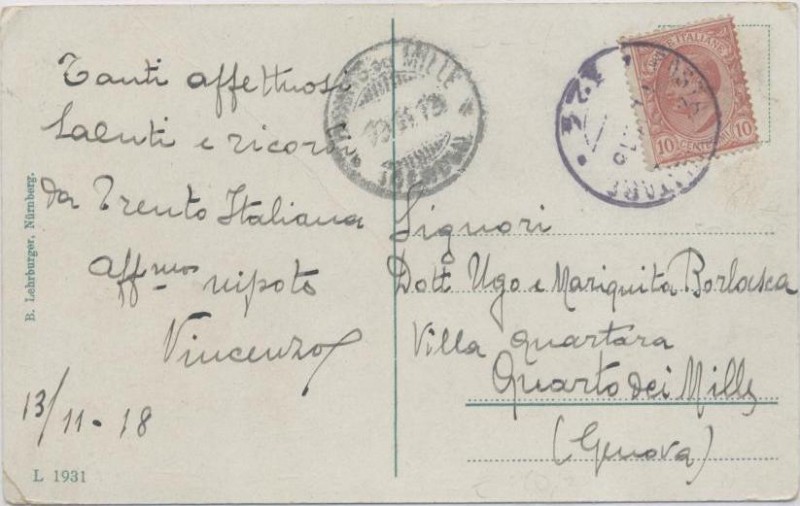 Tanti affettuosi
Saluti e ricordi
da Trento Italiana
Aff.mos nipote
Vincenzo
13/11-18
B. Lehrburger, Nürnberg.
L 1931
MILLE
POSTA
MILITARE
ITALIANE
10 CENTESIMI 10
Signori
Dott Ugo e Mariquita Borlasca
Villa Quartara
Quarto dei Mille
(Genova)